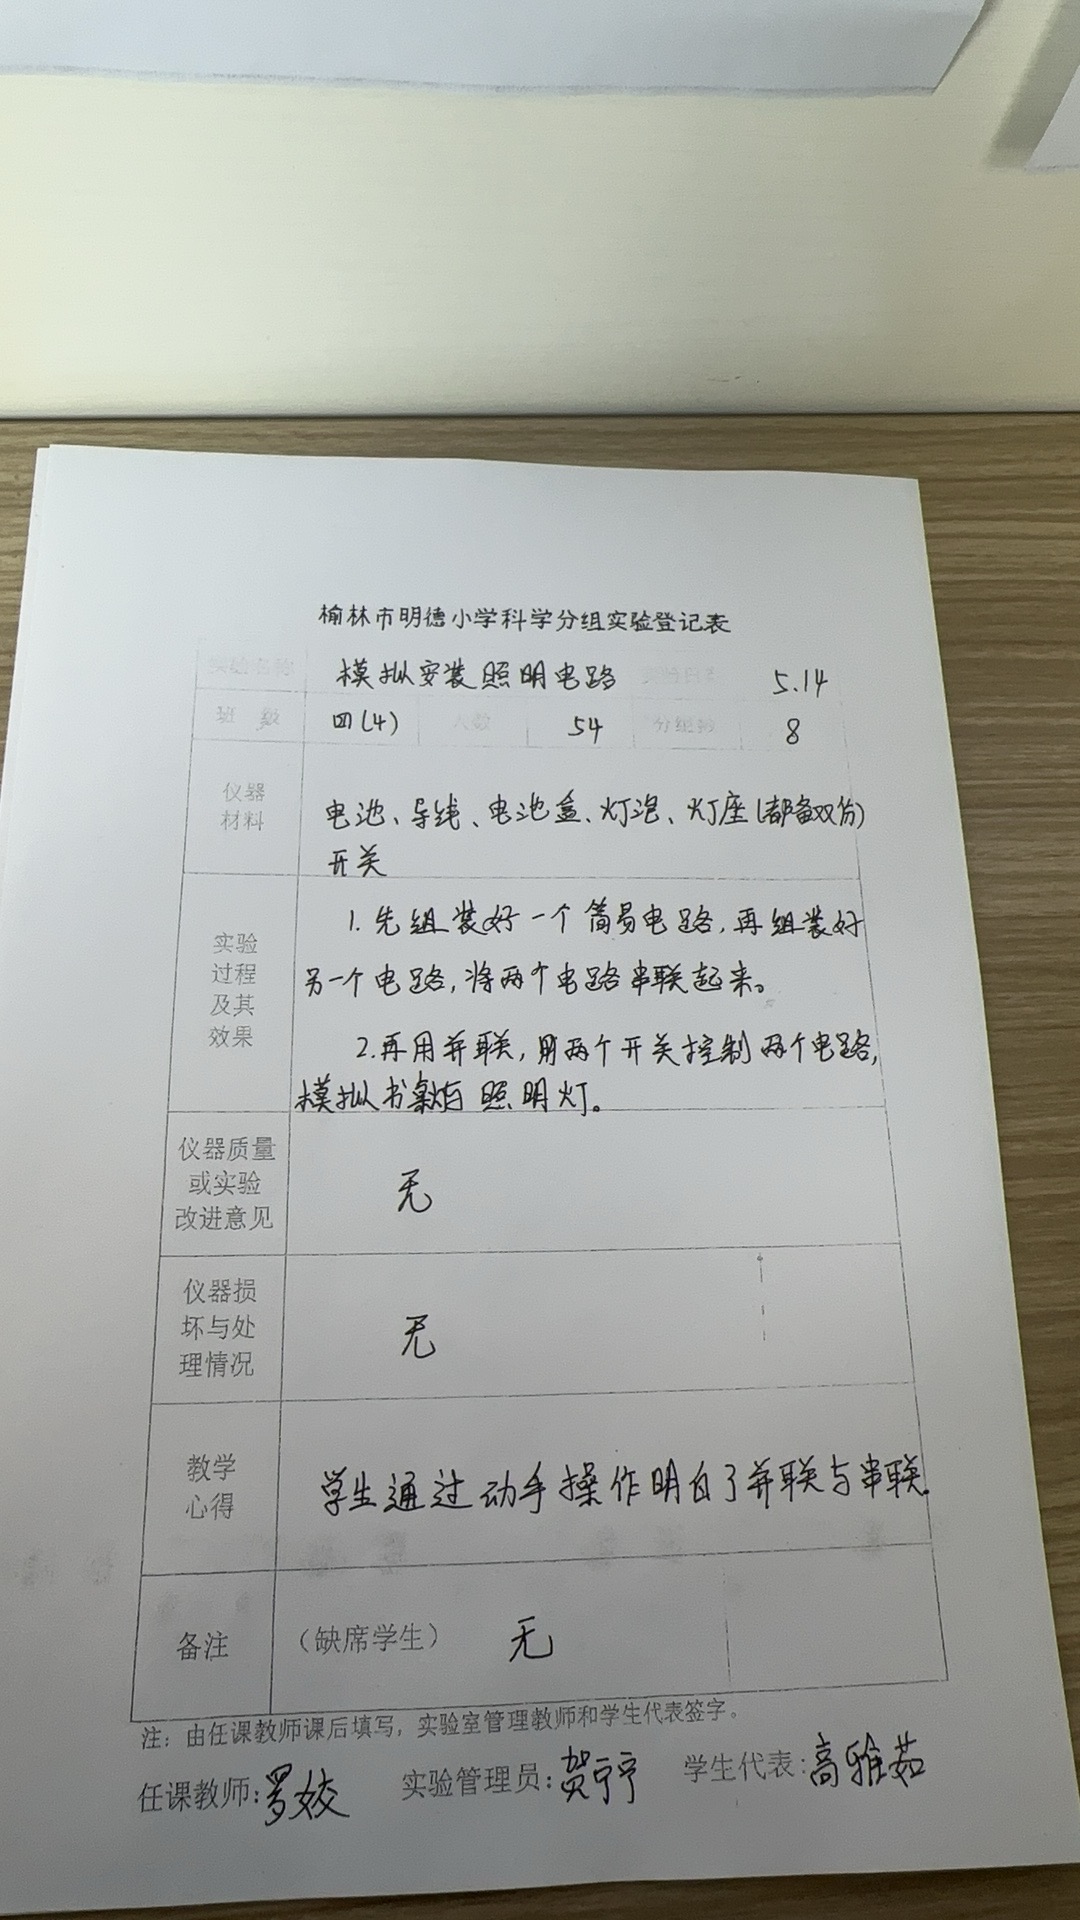 榆林市明德小学科学分组实验登记表
实验名称 模拟安装照明电路 实验日期 5.14
班 数 四(4) 人数 54 分组数 8
仪器
材料
电池、导线、电池盒、灯泡、灯座(都备双份)
开关
实验
过程
及其
效果
1.先组装好一个简易电路,再组装好
另一个电路,将两个电路串联起来。
2.再用并联,用两个开关控制两个电路,
模拟书桌 照明灯。
仪器质量
或实验
改进意见
无
仪器损
坏与处
理情况
无
教学
心得
学生通过动手操作明白了并联与串联.
备注
(缺席学生) 无
注:由任课教师课后填写,实验室管理教师和学生代表签字。
任课教师:罗姣 实验管理员:贺宁宁 学生代表:高雅茹